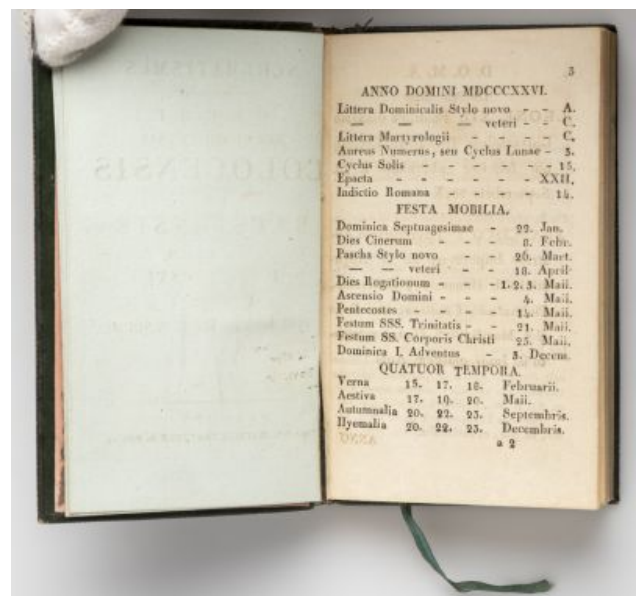 3
ANNO DOMINI MDCCCXXVI.
Littera Dominicalis Stylo novo - - A.
— — — veteri - - C.
Littera Martyrologii - - - - C.
Aureus Numerus, seu Cyclus Lunae - 3.
Cyclus Solis - - - - - - 15.
Epacta - - - - - - XXII.
Indictio Romana - - - - - 14.
FESTA MOBILIA.
Dominica Septuagesimae - 22. Jan.
Dies Cinerum - - - 8. Febr.
Pascha Stylo novo - - 26. Mart.
— — veteri - - 18. April.
Dies Rogationum - - - 1. 2. 3. Maii.
Ascensio Domini - - - 4. Maii.
Pentecostes - - - - 14. Maii.
Festum SSS. Trinitatis - - 21. Maii.
Festum SS. Corporis Christi 25. Maii.
Dominica I. Adventus - 3. Decem.
QUATUOR TEMPORA.
Verna 15. 17. 18. Februarii.
Aestiva 17. 19. 20. Maii.
Autumnalia 20. 22. 23. Septembris.
Hyemalia 20. 22. 23. Decembris.
a 2